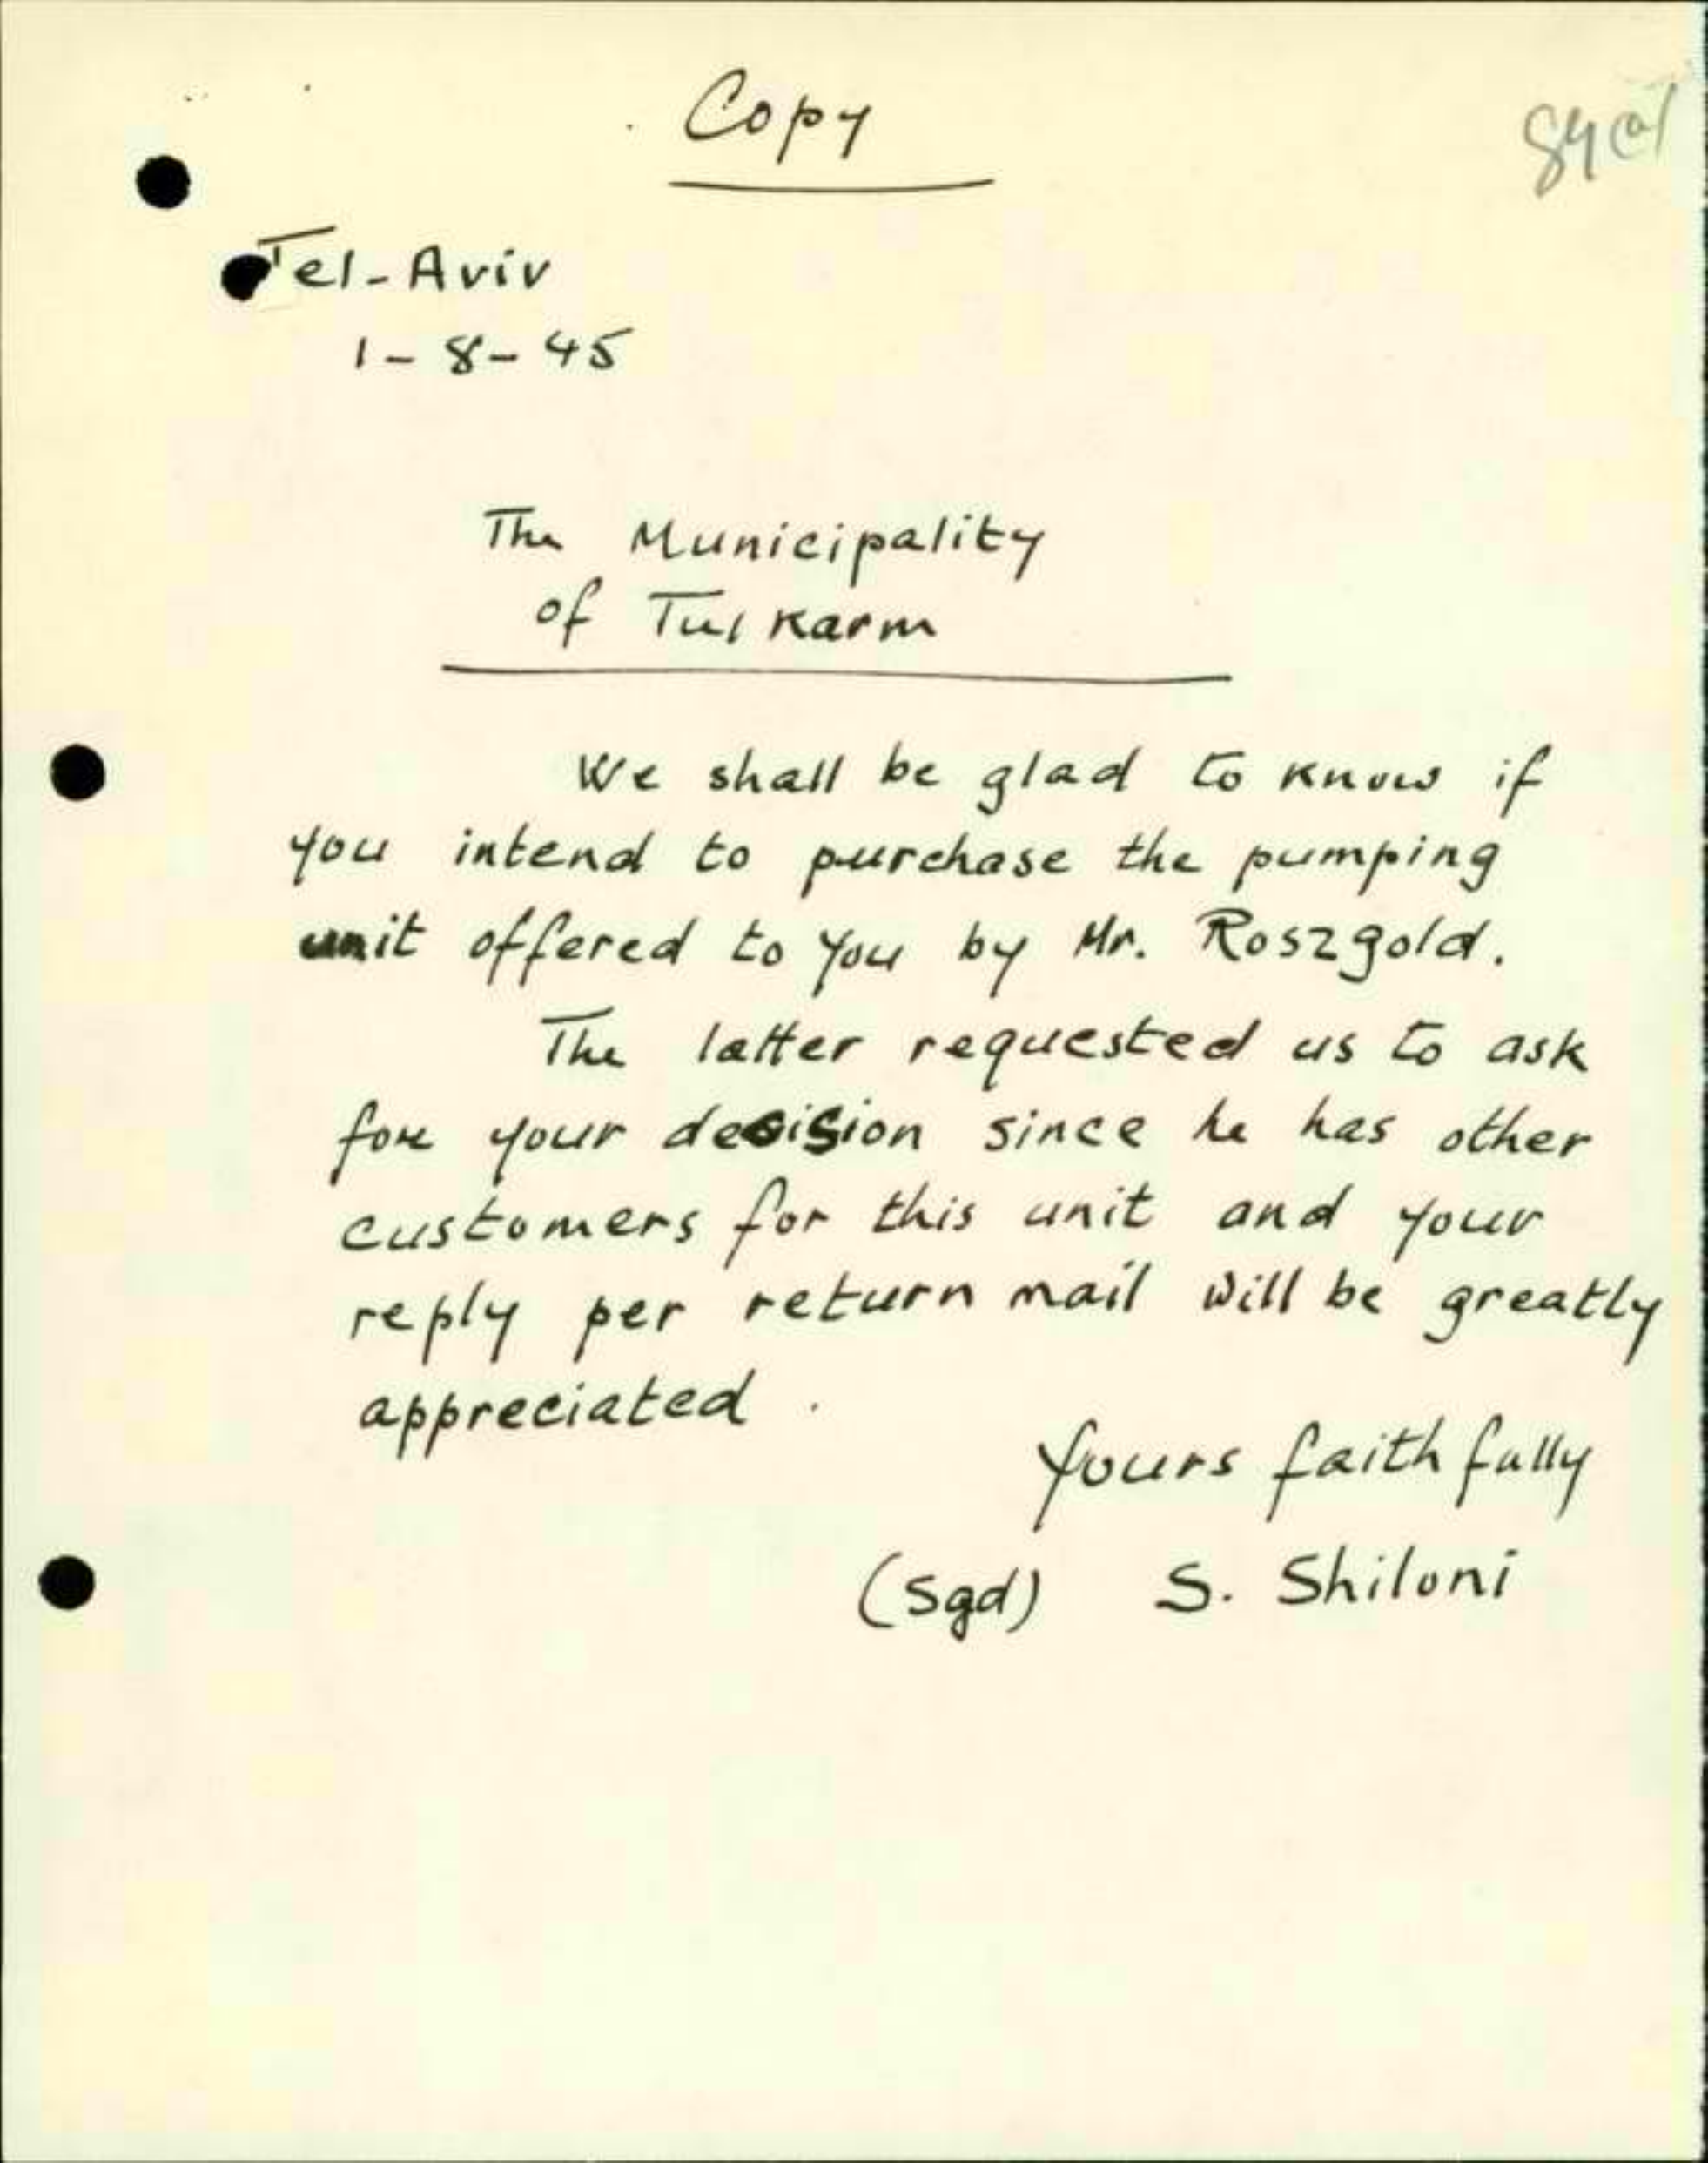 Copy
Tel-Aviv
1-8-45
The Municipality
of Tulkarm
We shall be glad to know if
you intend to purchase the pumping
unit offered to you by Mr. Roszgold.
The latter requested us to ask
for your decision since he has other
customers for this unit and your
reply per return mail will be greatly
appreciated.
Yours faithfully
(Sgd) S. Shiloni